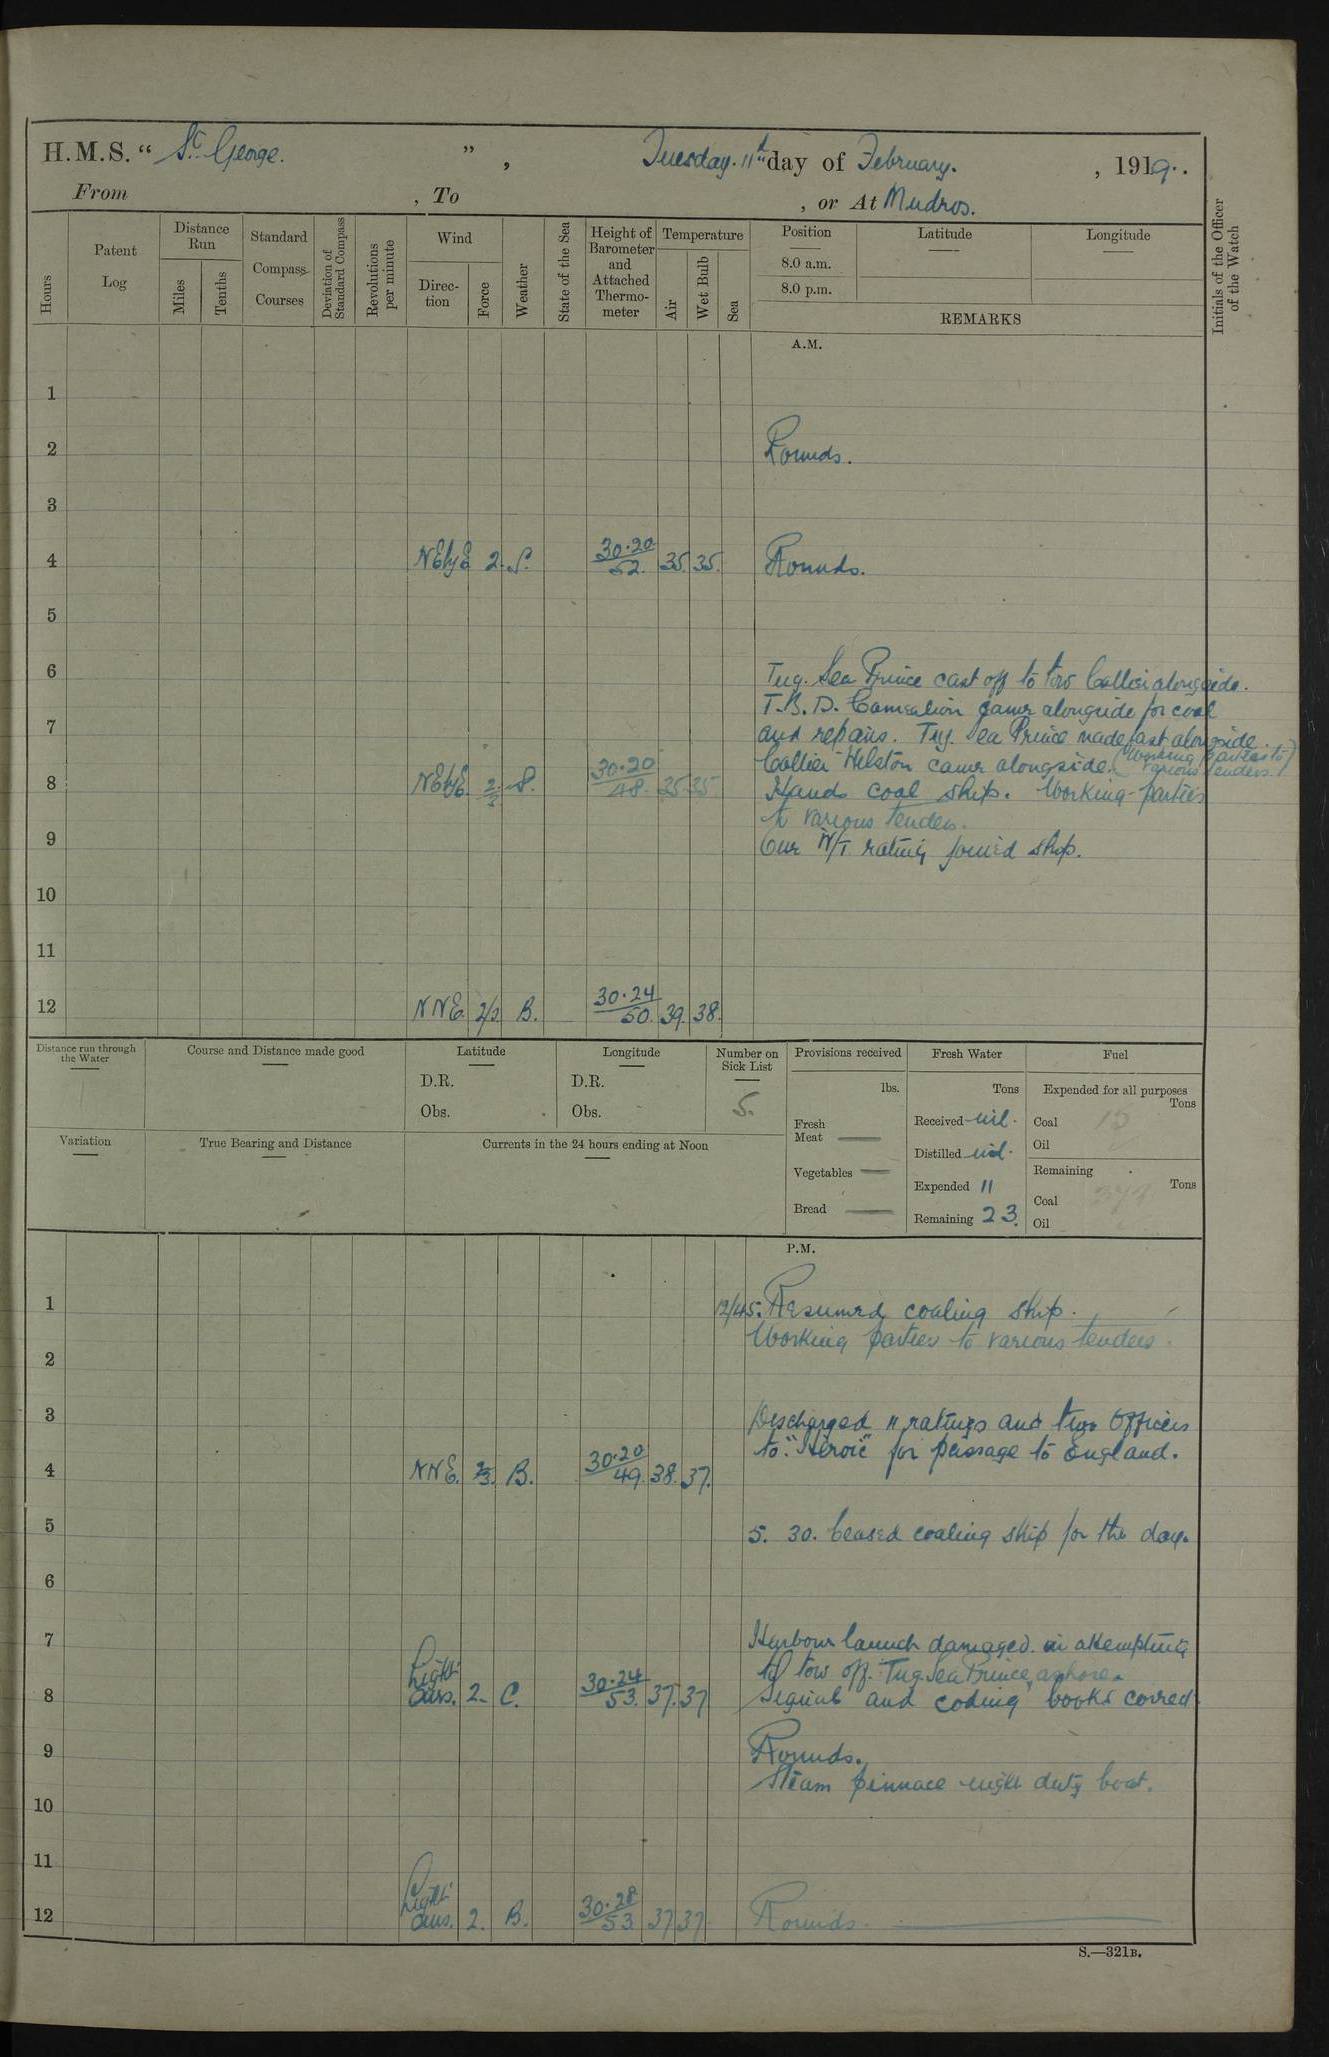 H.M.S. “ St. George. ” , Tuesday. 11th day of February. , 1919.
From , To , or At Mudros.
Hours
Patent Log
Distance Run
Miles
Tenths
Standard Compass Courses
Deviation of Standard Compass
Revolutions per minute
Wind
Direction
Force
Weather
State of the Sea
Height of Barometer and Attached Thermometer
Temperature
Air
Wet Bulb
Sea
Position
8.0 a.m.
8.0 p.m.
Latitude
Longitude
REMARKS
Initials of the Officer of the Watch
A.M.
1
2 Rounds.
3
4 NEbyE 2. S. 30.20/52. 35. 35. Rounds.
5
6 Tug. Sea Prince cast off to tow Collier alongside.
T.B.D. came alongside for coal
7 and repairs. Tug. Sea Prince made fast alongside.
Collier Helston came alongside. (Working parties to various tenders.)
8 NEbyE. 2/3 S. 30.20/48. 35 35. Hands coal ship. Working parties
to various tenders.
9 One W/T rating joined ship.
10
11
12 NNE. 2/3 B. 30.24/50. 39. 38.
Distance run through the Water
Course and Distance made good
Latitude
D.R.
Obs.
Longitude
D.R.
Obs.
Number on Sick List
5.
Provisions received
lbs.
Fresh Meat
Vegetables
Bread
Fresh Water
Tons
Received nil.
Distilled nil.
Expended 11
Remaining 23.
Fuel
Expended for all purposes
Tons
Coal 15
Oil
Remaining
Tons
Coal
Oil
Variation
True Bearing and Distance
Currents in the 24 hours ending at Noon
P.M.
1 12/45. Resumed coaling ship.
Working parties to various tenders.
2
3 Discharged 11 ratings and two Officers
to "Heroic" for passage to England.
4 NNE. 2/3. B. 30.20/49. 38. 37.
5 5. 30. Ceased coaling ship for the day.
6
7 Harbour launch damaged in attempting
to tow off. Tug. Sea Prince, ashore.
8 Light airs. 2. C. 30.24/53. 37. 37 Signal and coding books corred
9 Rounds.
Steam pinnace night duty boat.
10
11
12 Light airs. 2. B. 30.28/53 37 37 Rounds.
S.—321B.